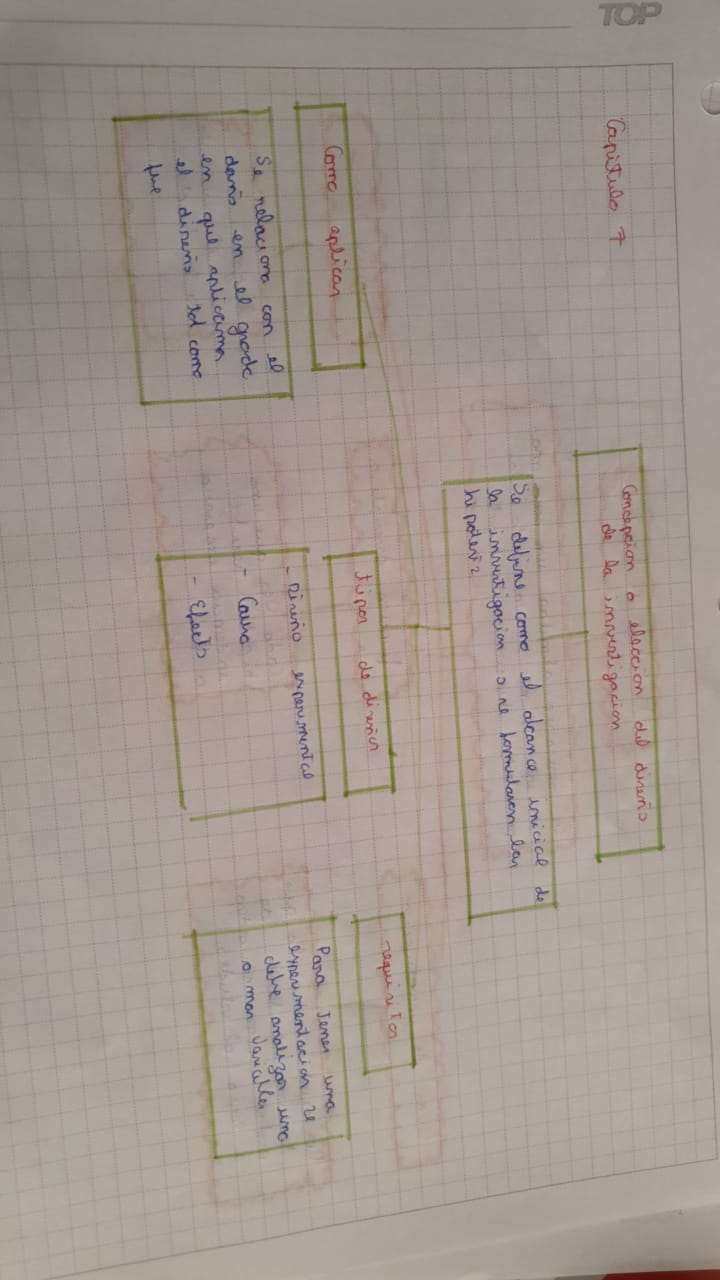 TOP
Capitulo 7
Concepcion o eleccion del diseño
de la investigacion
Se define como el alcance inicial de
la investigacion o se formularon las
hipotesis
Como aplicar
Se relaciona con el
daño en el grado
en que aplicaron
el diseño tal como
fue
tipos de diseños
- Diseño experimental
- Causa
- Efecto
requisitos
Para Tener una
experimentacion se
debe analizar una
o mas Variables